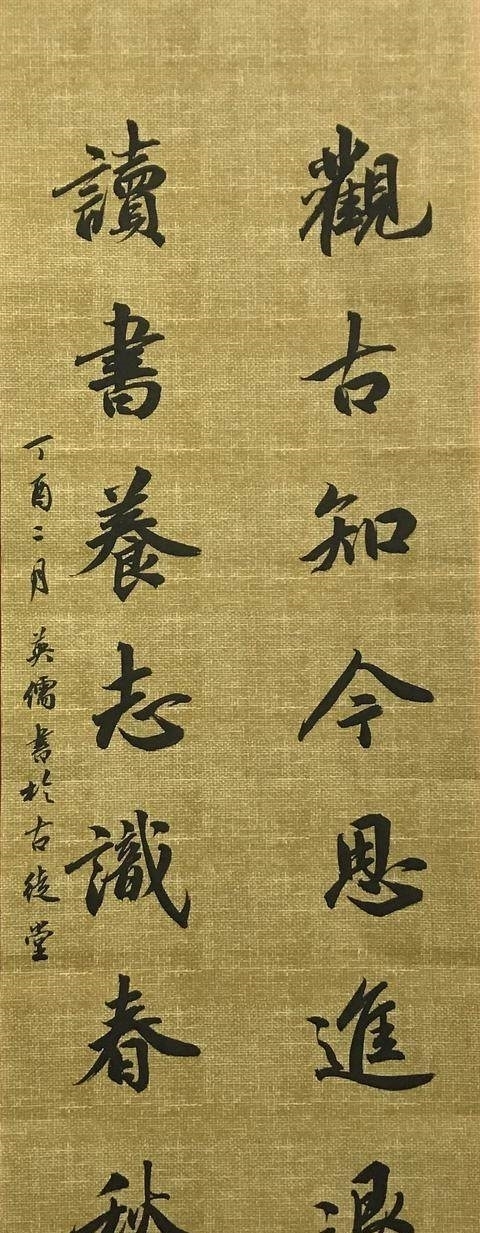 觀古知今思進退
讀書養志識春秋
丁酉二月 英儒書於古堂